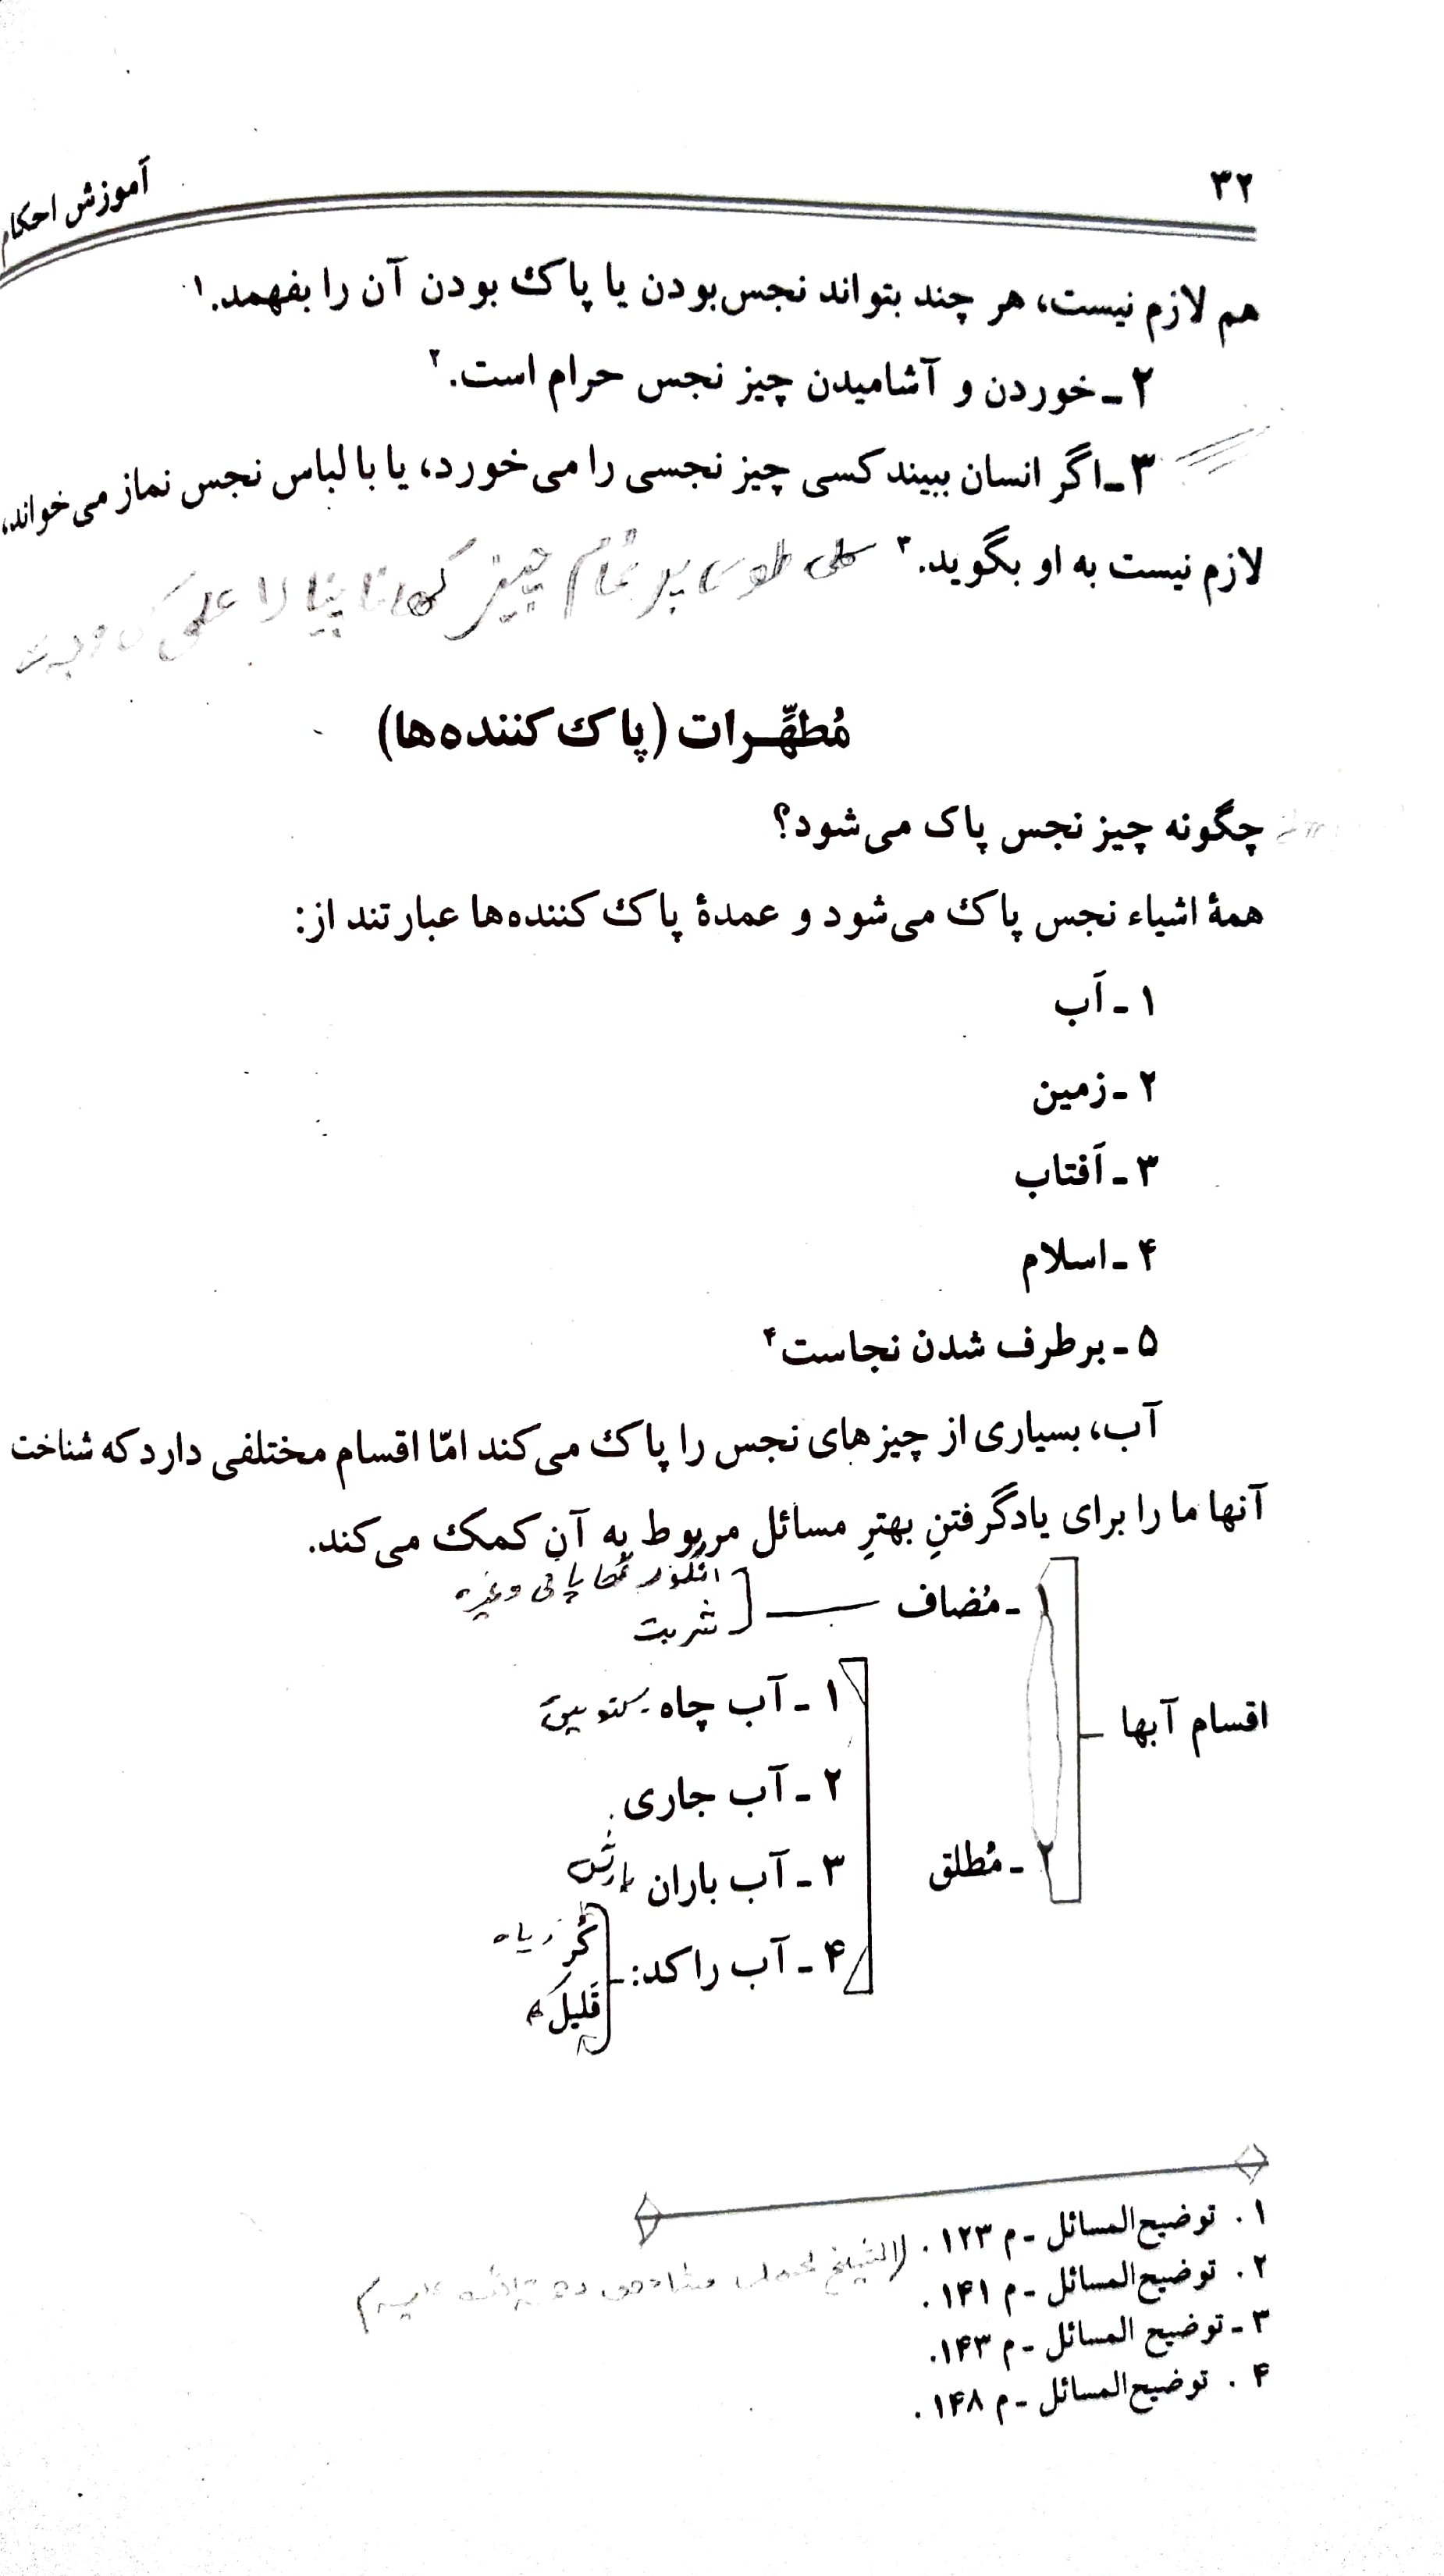 ۳۲
آموزش احکام
هم لازم نیست، هر چند بتواند نجس‌بودن یا پاک بودن آن را بفهمد.۱
۲ ـ خوردن و آشامیدن چیز نجس حرام است.۲
۳ ـ اگر انسان ببیند کسی چیز نجسی را می‌خورد، یا با لباس نجس نماز می‌خواند،
لازم نیست به او بگوید.۳ کلی طور پر تمام چیز
مُطهِّرات (پاک کننده‌ها)
چگونه چیز نجس پاک می‌شود؟
همهٔ اشیاء نجس پاک می‌شود و عمدهٔ پاک کننده‌ها عبارتند از:
۱ ـ آب
۲ ـ زمین
۳ ـ آفتاب
۴ ـ اسلام
۵ ـ برطرف شدن نجاست۴
آب، بسیاری از چیزهای نجس را پاک می‌کند امّا اقسام مختلفی دارد که شناخت
آنها ما را برای یادگرفتنِ بهترِ مسائل مربوط به آن کمک می‌کند.
۱ ـ مُضاف
انگور کا پانی وغیره
شربت
اقسام آبها
۱ ـ آب چاه
۲ ـ آب جاری
۲ ـ مُطلق
۳ ـ آب باران بارش
۴ ـ آب راکد:
کُر زیاه
قَلیل
۱ . توضیح‌المسائل ـ م ۱۲۳ .
۲ . توضیح‌المسائل ـ م ۱۴۱ .
۳ ـ توضیح المسائل ـ م ۱۴۳.
۴ . توضیح‌المسائل ـ م ۱۴۸ .